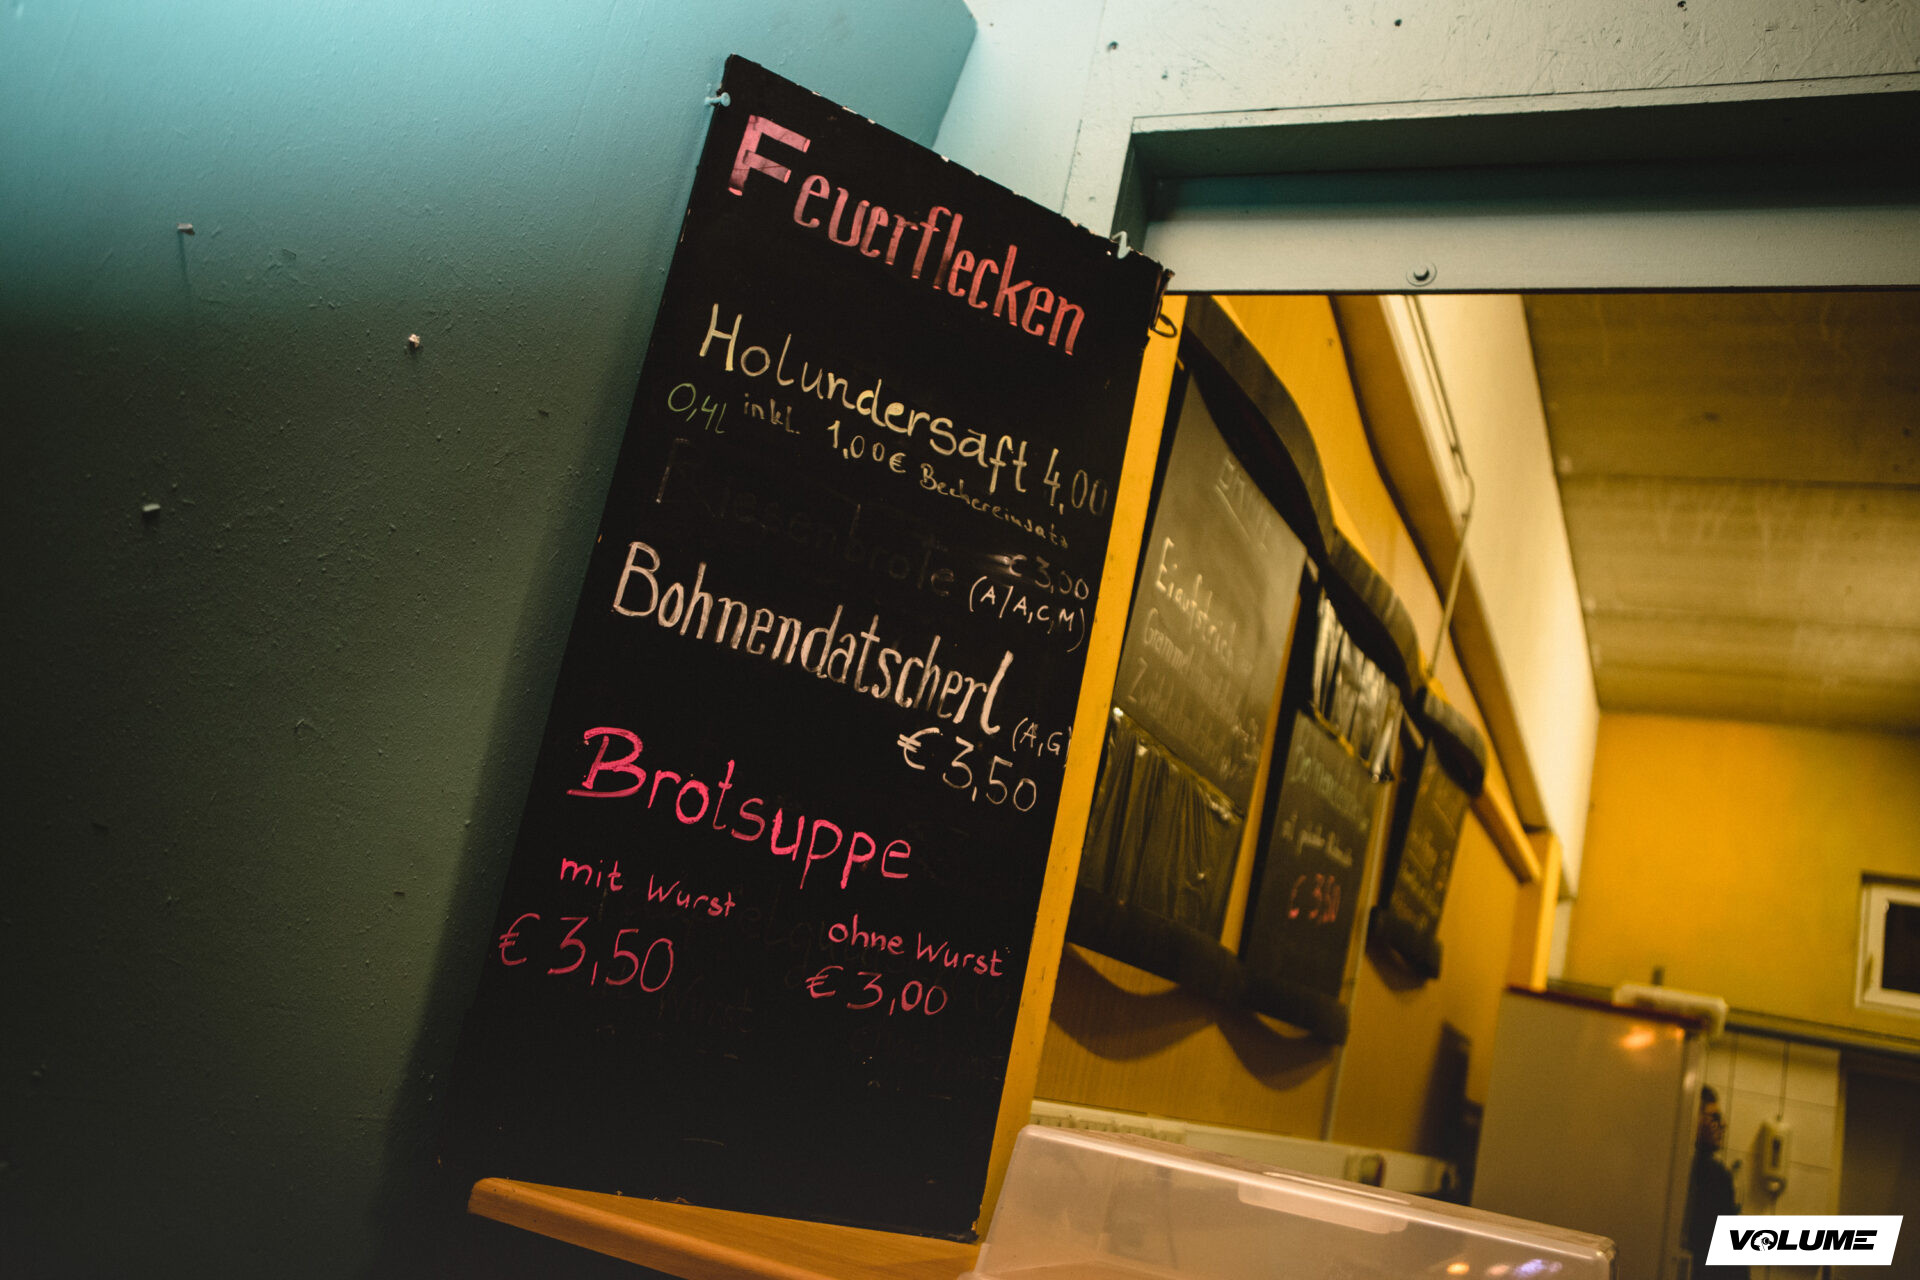 Feuerflecken
Holundersaft 4,00
0,4l inkl. 1,00€ Bechereinsatz
€3,00
(A/A,C,M)
Bohnendatscherl (A,G)
€ 3,50
Brotsuppe
mit Wurst
€ 3,50
ohne Wurst
€ 3,00
Eiaufstrich
€ 3,50
VOLUME